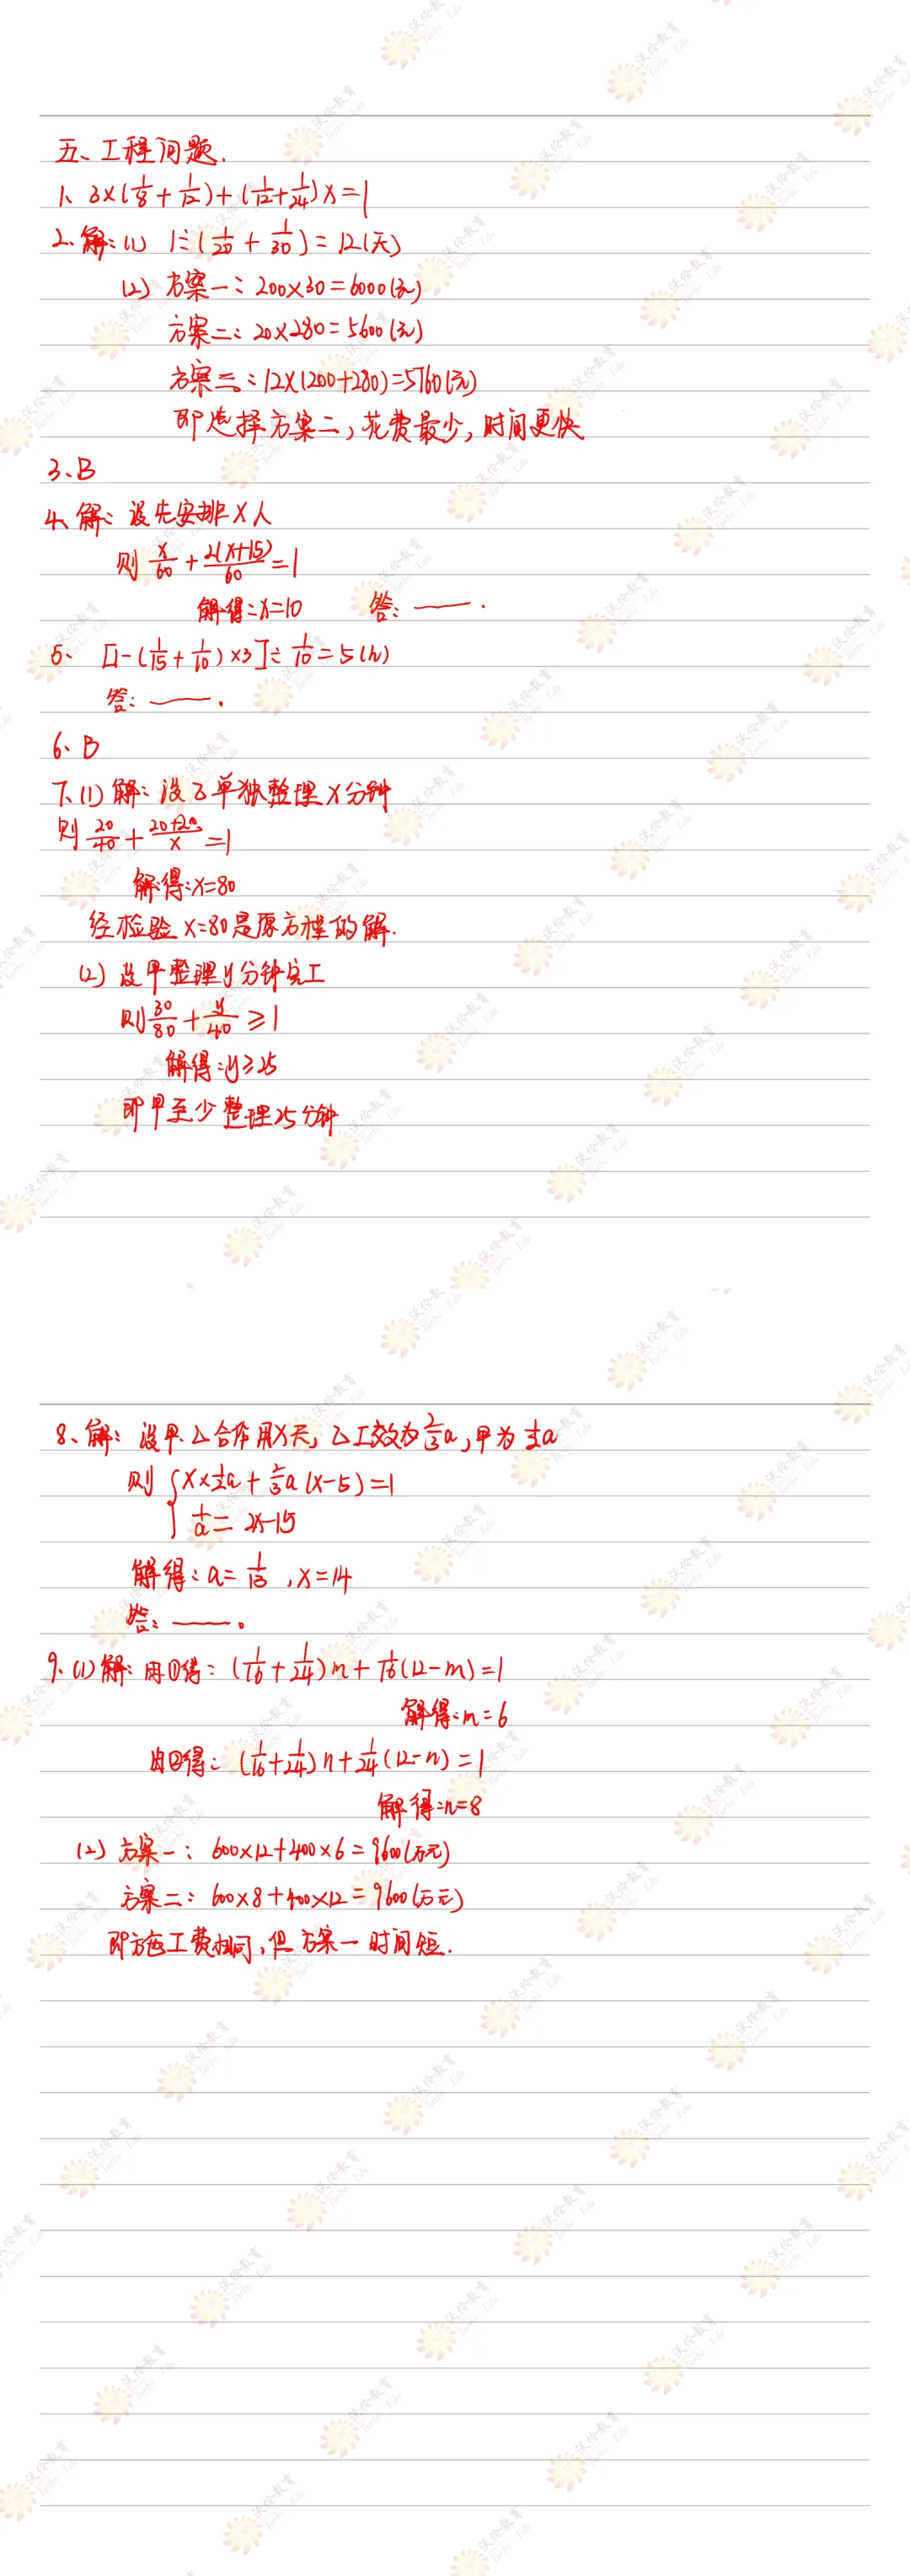 五、工程问题.
1、3×(1/8+1/12)+(1/12+1/24)x=1
2、解:(1) 1÷(1/20+1/30)=12(天)
(2) 方案一:200×30=6000(元)
方案二:20×280=5600(元)
方案三:12×(200+280)=5760(元)
即选择方案二,花费最少,时间更快
3、B
4、解:设先安排x人
则 x/60+2(x+15)/60=1
解得:x=10 答:——.
5、[1-(1/15+1/10)×3]÷1/10=5(h)
答:——.
6、B
7、(1)解:设乙单独整理x分钟
则 20/40+(20+20)/x=1
解得:x=80
经检验x=80是原方程的解.
(2)设甲整理y分钟完工
则 30/80+y/40≥1
解得:y≥25
即甲至少整理25分钟
8、解:设甲、乙合作用x天,乙工效为2/3a,甲为1/2a
则 {x×1/2a+2/3a(x-5)=1
1/a=2x-15
解得:a=1/13,x=14
答:——.
9、(1)解:由①得:(1/16+1/24)m+1/16(12-m)=1
解得:m=6
由②得:(1/16+1/24)n+1/24(12-n)=1
解得:n=8
(2)方案一:600×12+400×6=9600(万元)
方案二:600×8+400×12=9600(万元)
即施工费相同,但方案一时间短.
沃伦教育
Turbo Edu